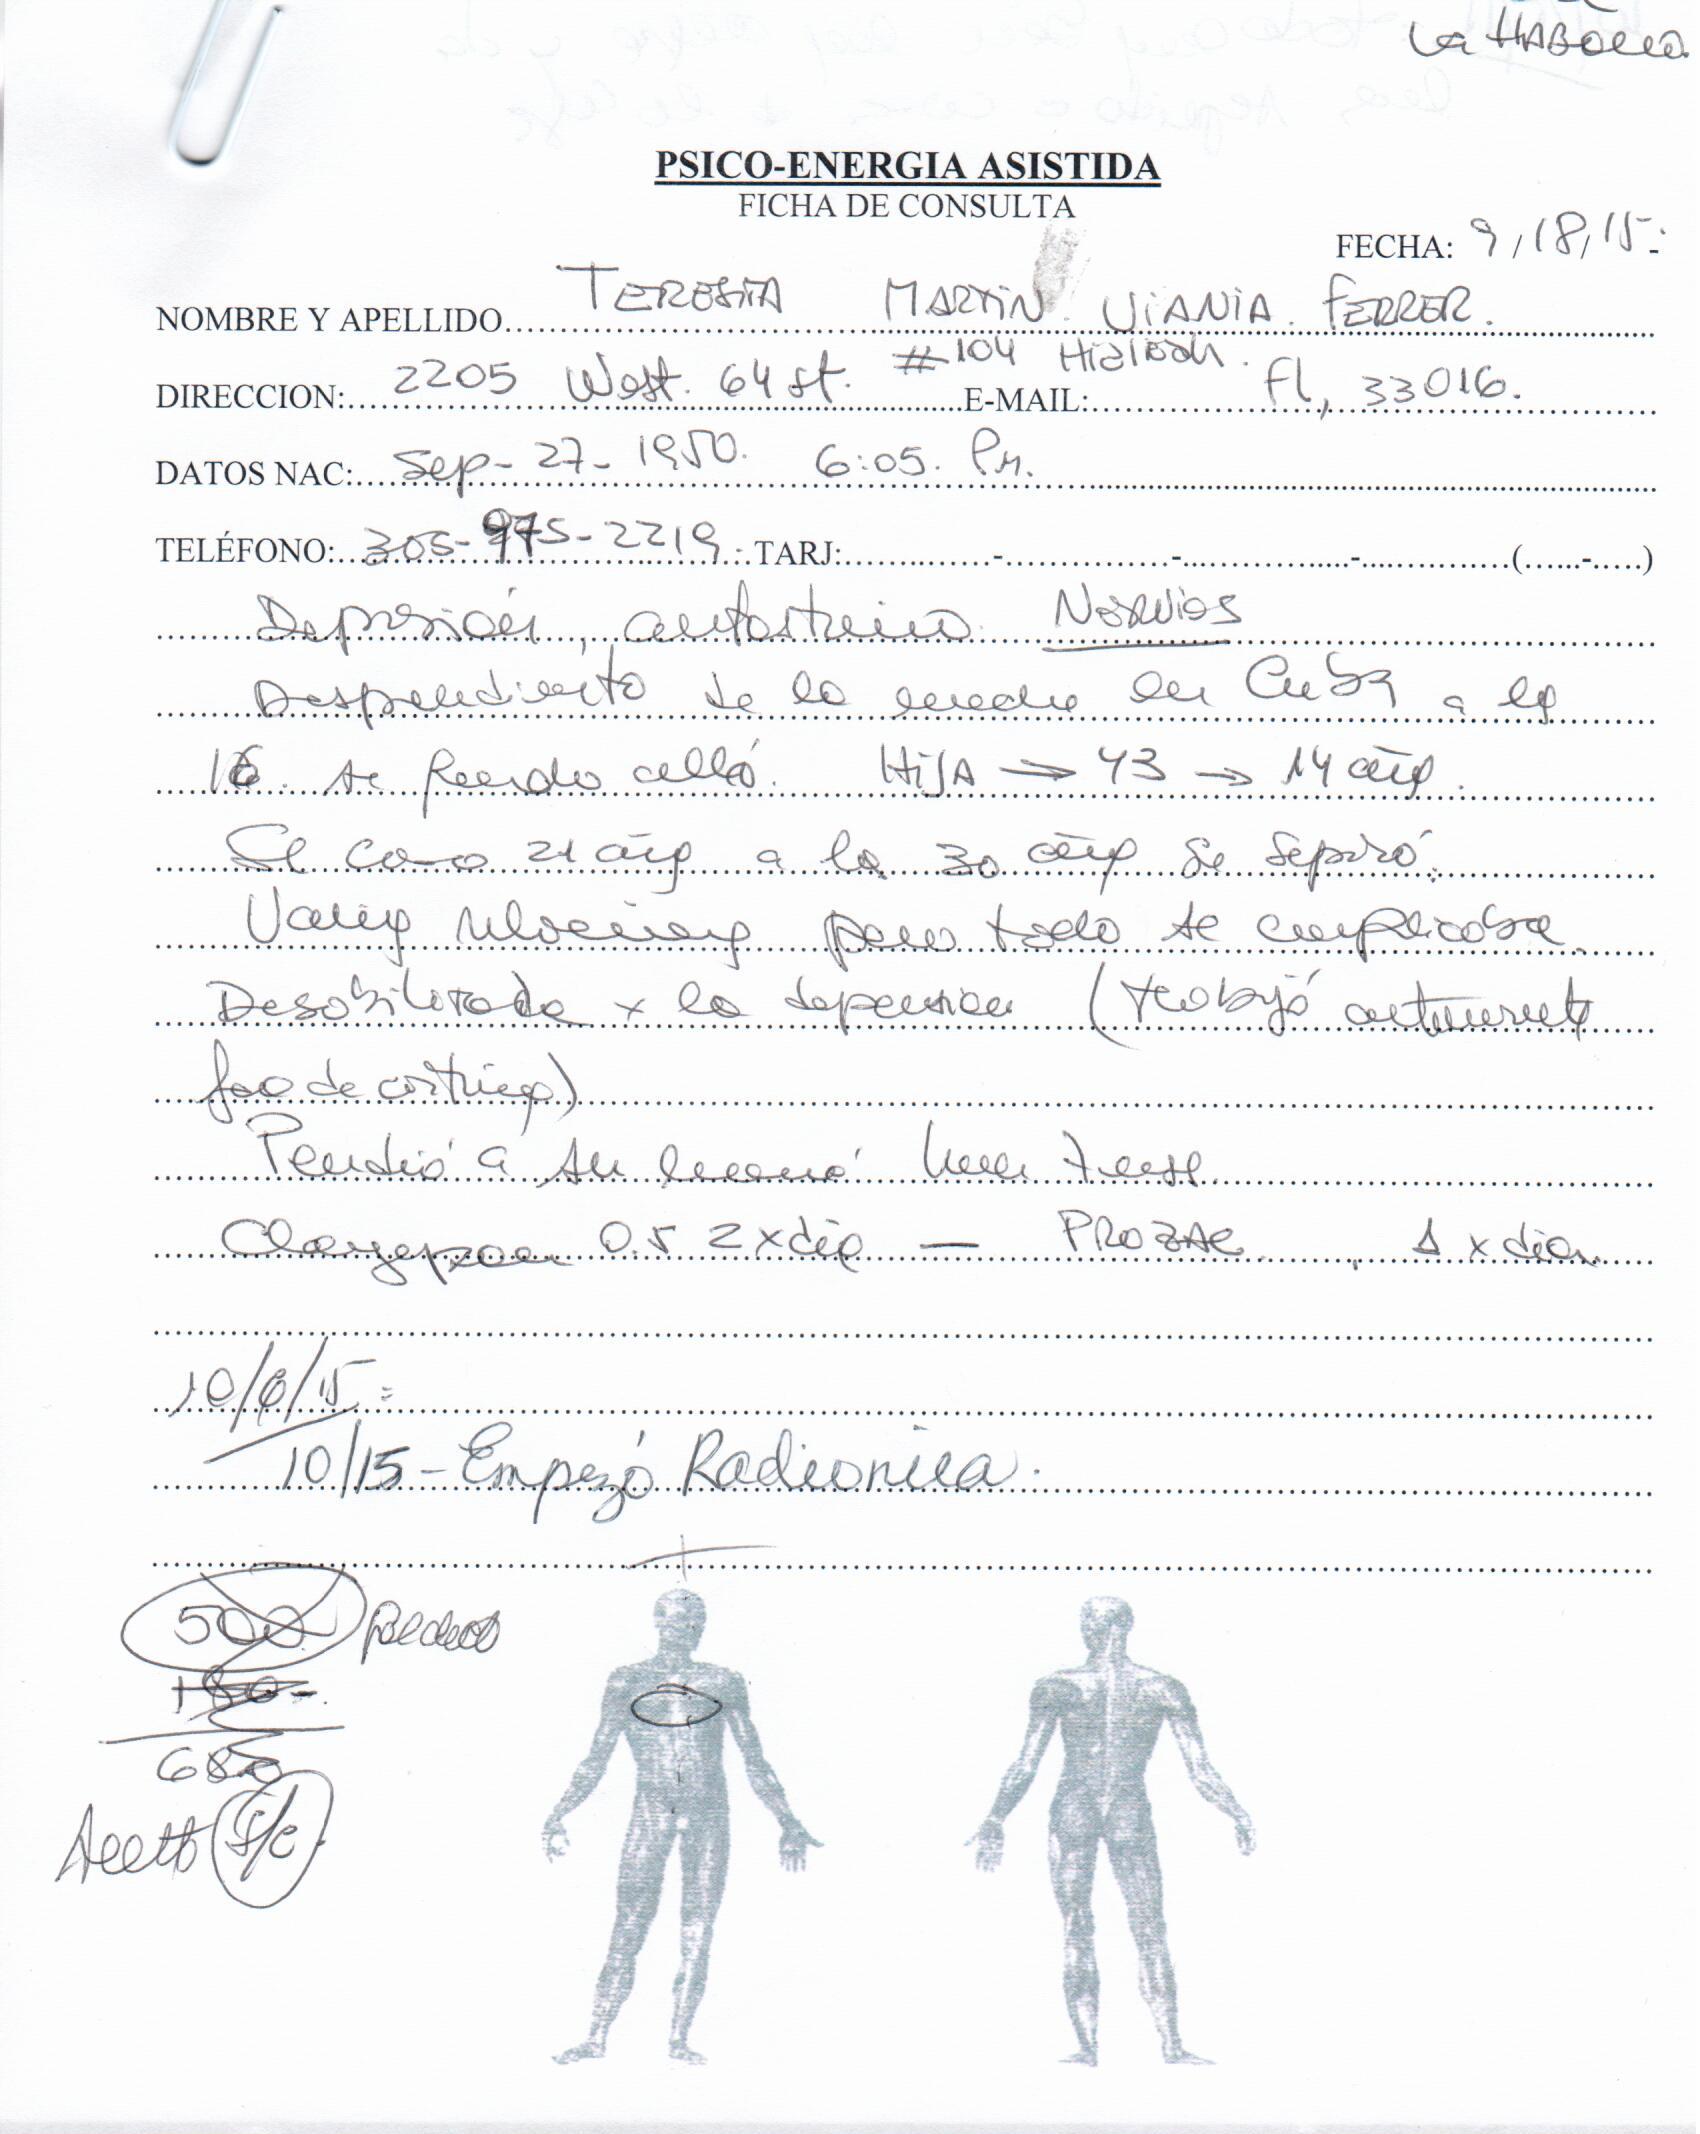 La HABANA
PSICO-ENERGIA ASISTIDA
FICHA DE CONSULTA
FECHA: 9/18/15
NOMBRE Y APELLIDO TERESITA MARTIN VIANIA FERRER.
DIRECCION: 2205 West. 64 st. #104 Hialeah. E-MAIL: Fl, 33016.
DATOS NAC: Sep-27-1950. 6:05. Pm.
TELÉFONO: 305-975-2219 TARJ: - - - ( - )
Depresión, Nervios
de la madre en Cuba a los
16. se quedo allá. HIJA → 43 → 14 años.
Se caso 21 años a los 30 años se separó.
Varias relaciones pero todo se complicaba.
x la depresion (trabajó
de cortinas)
a su mamá
0.5 2 x dia — PROZAC 1 x dia
10/6/15=
10/15 - Empezó Radionica.
500
180-
680
S/C